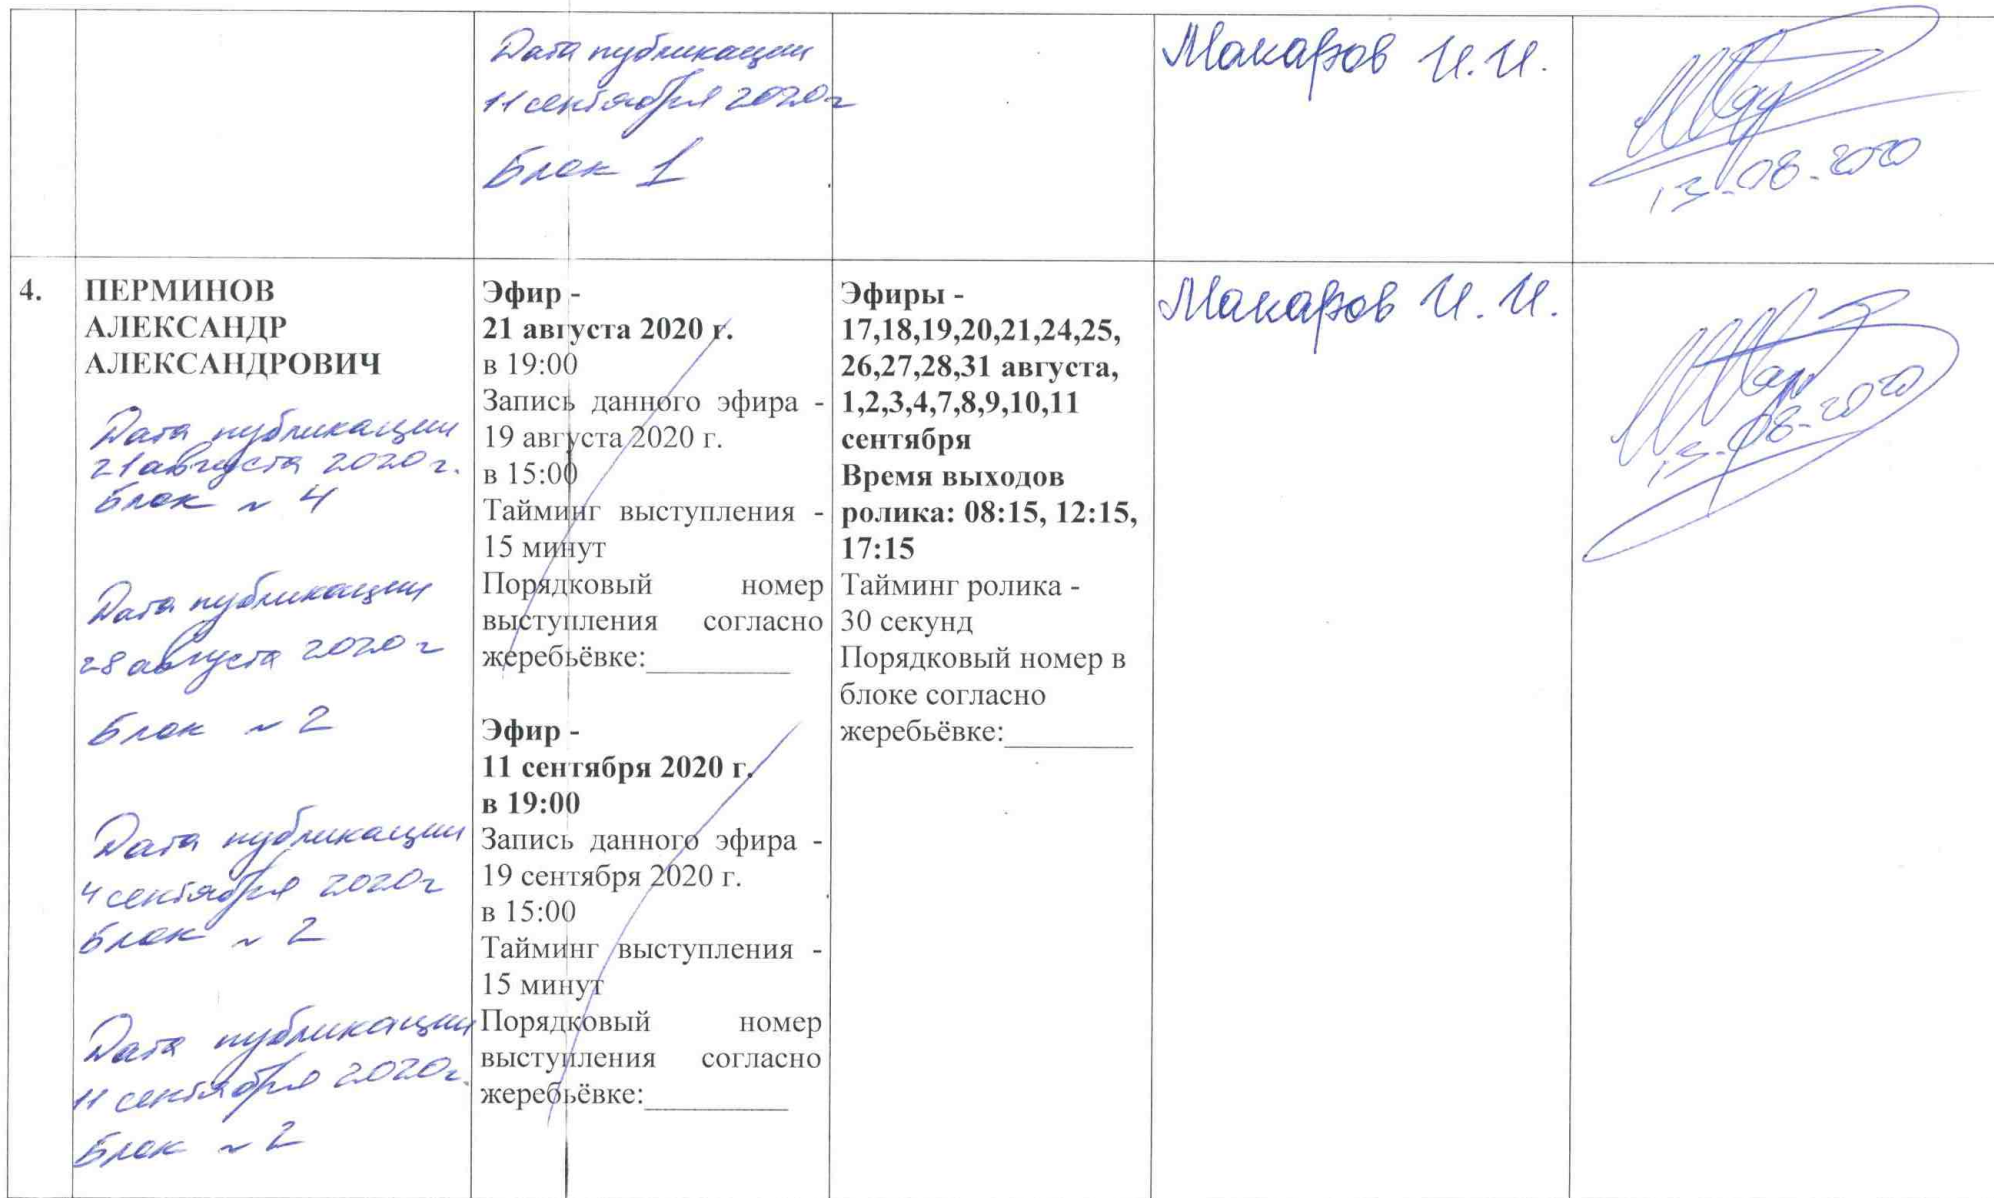 Дата публикации
11 сентября 2020г
Блок 1
Макаров И.И.
13.08.2020
4.
ПЕРМИНОВ
АЛЕКСАНДР
АЛЕКСАНДРОВИЧ
Дата публикации
21 августа 2020 г.
Блок ~ 4
Дата публикации
28 августа 2020 г
Блок ~ 2
Дата публикации
4 сентября 2020г
Блок ~ 2
Дата публикации
11 сентября 2020г.
Блок ~ 2
Эфир -
21 августа 2020 г.
в 19:00
Запись данного эфира -
19 августа 2020 г.
в 15:00
Тайминг выступления -
15 минут
Порядковый номер
выступления согласно
жеребьёвке:__________
Эфир -
11 сентября 2020 г.
в 19:00
Запись данного эфира -
19 сентября 2020 г.
в 15:00
Тайминг выступления -
15 минут
Порядковый номер
выступления согласно
жеребьёвке:__________
Эфиры -
17,18,19,20,21,24,25,
26,27,28,31 августа,
1,2,3,4,7,8,9,10,11
сентября
Время выходов
ролика: 08:15, 12:15,
17:15
Тайминг ролика -
30 секунд
Порядковый номер в
блоке согласно
жеребьёвке:_________
Макаров И.И.
13.08.2020